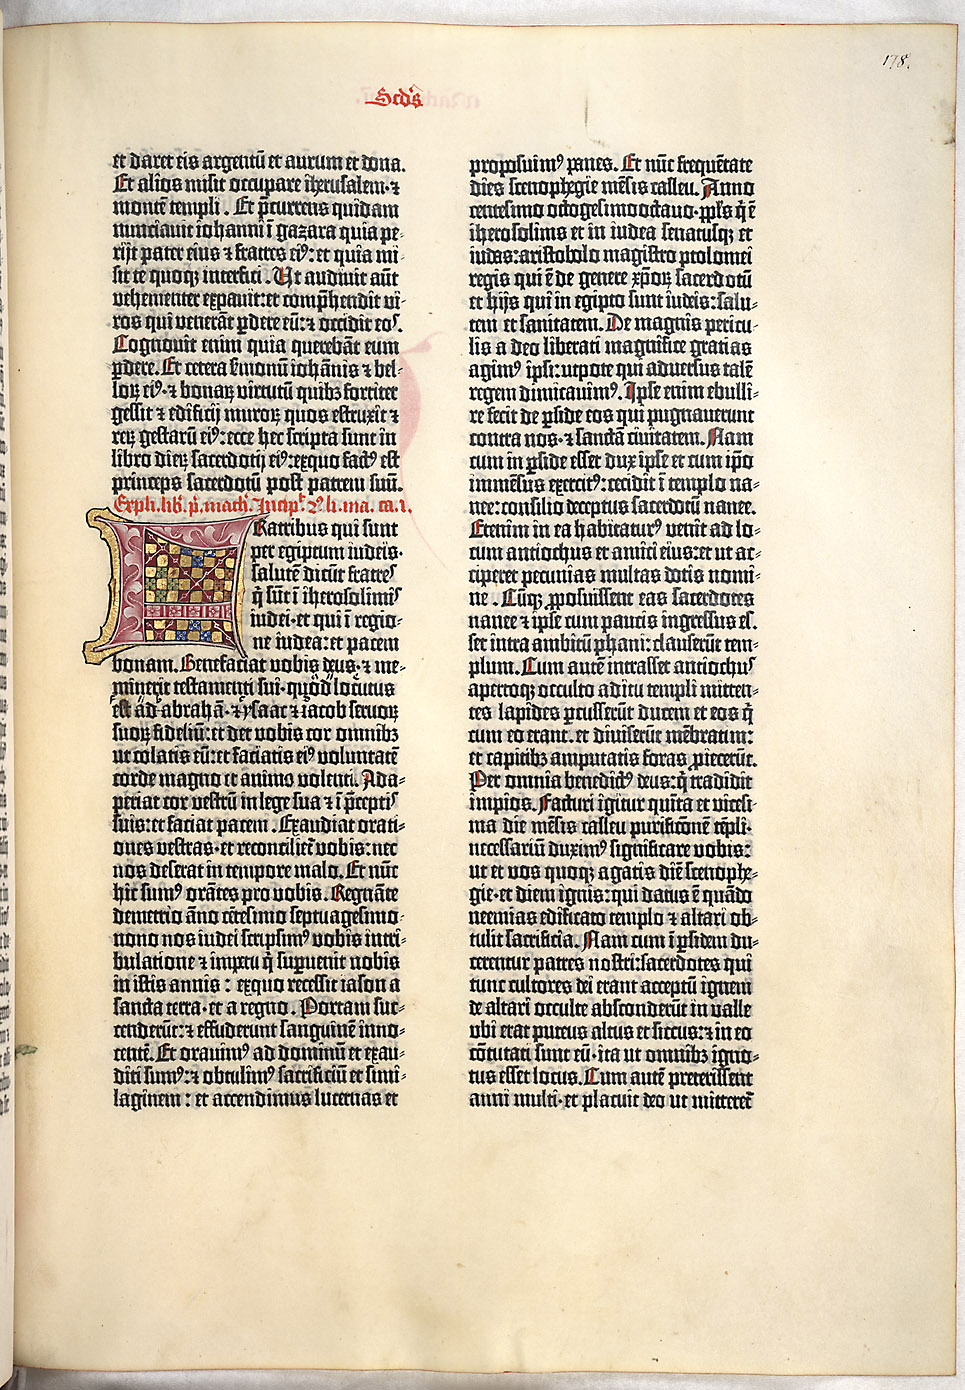 178.
Scds
et daret eis argentū et aurum et dona.
Et alios misit occupare iherusalem·⁊
montē templi. Et p̄currens quidam
nunciauit iohanni ī gazara quia pe-
rijt pater eius ⁊ fratres eiꝰ: et quia mi-
sit te quoqꝫ interfici. Ut audiuit aūt
vehementer expauit: et comp̄hendit vi-
ros qui venerāt ꝑdere eū: ⁊ occidit eos.
Cognouit enim quia querebāt eum
ꝑdere. Et cetera s̄monū iohānis ⁊ bel-
loꝝ eiꝰ·⁊ bonaꝝ virtutū quibꝫ fortiter
gessit ⁊ edificij muroꝝ quos estruxit ⁊
reꝝ gestarū eiꝰ: ecce hec scripta sunt in
libro dieꝝ sacerdotij eiꝰ: exquo factꝰ est
princeps sacerdotū post patrem suū.
Expli. lib. p̄. mach. Incip. 2ꝰ li. ma. ca. i.
Fratribus qui sunt
per egiptum iudeis·
salutē dicūt fratres
q̄ sūt ī iherosolimis
iudei·et qui ī regio-
ne iudea: et pacem
bonam. Benefaciat vobis deus·⁊ me-
minerit testamenti sui·quod locutus
est ad abraham·⁊ ysaac ⁊ iacob seruoꝝ
suoꝝ fideliū: et det vobis cor omnibꝫ
ut colatis eū: et faciatis eiꝰ voluntatē
corde magno et animo volenti. Ada-
periat cor vestrū in lege sua ⁊ ī p̄ceptis
suis: et faciat pacem. Exaudiat orati-
ones vestras·et reconciliet̄ vobis: nec
vos deserat in tempore malo. Et nūc
hic sumꝰ orātes pro vobis. Regnāte
demetrio āno cētesimo septuagesimo
nono nos iudei scripsimꝰ vobis in tri-
bulatione ⁊ impetu q̄ suꝑuenit nobis
in istis annis: exquo recessit iason a
sancta terra·et a regno. Portam suc-
cenderūt: ⁊ effuderunt sanguinē inno-
centē. Et orauimꝰ ad dominū et exau-
diti sumꝰ: ⁊ obtulimꝰ sacrificiū et simi-
laginem: et accendimus lucernas et
proposuimꝰ panes. Et nūc frequētate
dies scenophegie mēsis casleu. Anno
centesimo octogesimooctauo·ppl̄s q̄ ē
iherosolimis et in iudea senatusqꝫ et
iudas: aristobolo magistro ptolomei
regis qui ē de genere xp̄oꝝ sacerdotū
et hijs qui in egipto sunt iudeis: salu-
tem et sanitatem. De magnis pericu-
lis a deo liberati magnifice gratias
agimꝰ ipsi: utpote qui aduersus talē
regem dimicauimꝰ. Ipse enim ebulli-
re fecit de ꝑside eos qui pugnauerunt
contra nos·⁊ sanctā ciuitatem. Nam
cum in ꝑside esset dux ipse et cum ip̄o
immēsus exercitꝰ: cecidit ī templo na-
nee: consilio deceptus sacerdotū nanee.
Etenim in ea habitaturꝰ venit ad lo-
cum antiochus et amici eius: et ut ac-
ciperet pecunias multas dotis nomi-
ne. Cūqꝫ ꝓposuissent eas sacerdotes
nanee ⁊ ipse cum paucis ingressus es-
set intra ambitū phani: clauserūt tem-
plum. Cum autē intrasset antiochus
apertoqꝫ occulto aditu templi mitten-
tes lapides ꝑcusserūt ducem et eos q̄
cum eo erant. et diuiserūt mēbratim:
et capitibꝫ amputatis foras ꝓiecerūt.
Per omnia benedictꝰ deus: q̄ tradidit
impios. Facturi igitur quīta et vicesi-
ma die mēsis casleu purificōnē tēpli·
necessariū duximꝰ significare vobis:
ut et vos quoqꝫ agatis diē scenophe-
gie·et diem ignis: qui datus ē quādo
neemias edificato templo ⁊ altari ob-
tulit sacrificia. Nam cum ī ꝑsidem du-
cerentur patres nostri: sacerdotes qui
tunc cultores dei erant acceptū ignem
de altari occulte absconderūt in valle
vbi erat puteus altus et siccus: ⁊ in eo
cōtutati sunt eū·ita ut omnibꝫ igno-
tus esset locus. Cum autē preterissent
anni multi·et placuit deo ut mitteret̄